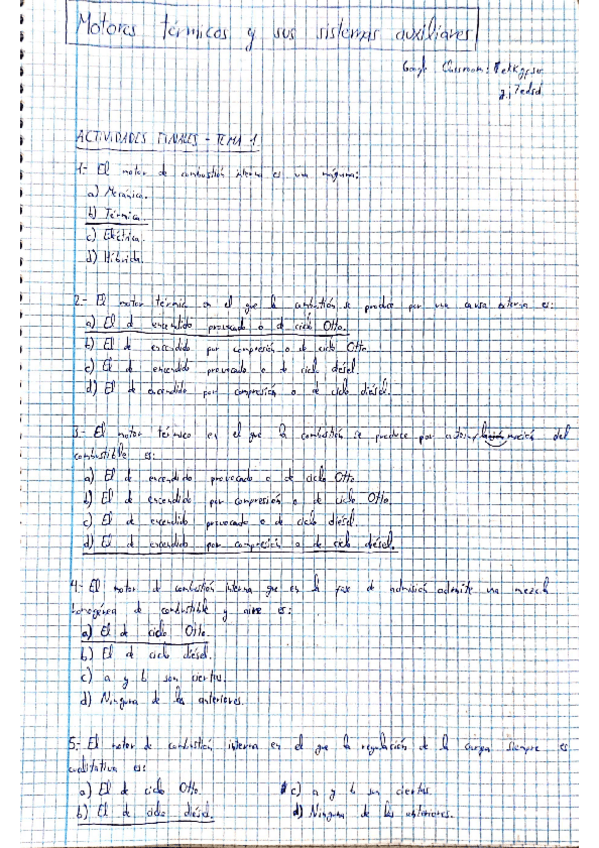 Motores térmicos y sus sistemas auxiliares
Google Classroom:
ACTIVIDADES FINALES - TEMA 1
1- El motor de combustión interna es una máquina:
a) Mecánica.
b) Térmica.
c) Eléctrica.
d) Híbrida.
2- El motor térmico en el que la combustión se produce por una causa externa es:
a) El de encendido provocado o de ciclo Otto.
b) El de encendido por compresión o de ciclo Otto.
c) El de encendido provocado o de ciclo diésel.
d) El de encendido por compresión o de ciclo diésel.
3- El motor térmico en el que la combustión se produce por del
combustible es:
a) El de encendido provocado o de ciclo Otto.
b) El de encendido por compresión o de ciclo Otto.
c) El de encendido provocado o de ciclo diésel.
d) El de encendido por compresión o de ciclo diésel.
4- El motor de combustión interna que en la fase de admisión admite una mezcla
homogénea de combustible y aire es:
a) El de ciclo Otto.
b) El de ciclo diésel.
c) a y b son ciertas.
d) Ninguna de las anteriores.
5- El motor de combustión interna en el que la regulación de la carga siempre es
cualitativa es:
a) El de ciclo Otto.
b) El de ciclo diésel.
c) a y b son ciertas.
d) Ninguna de las anteriores.